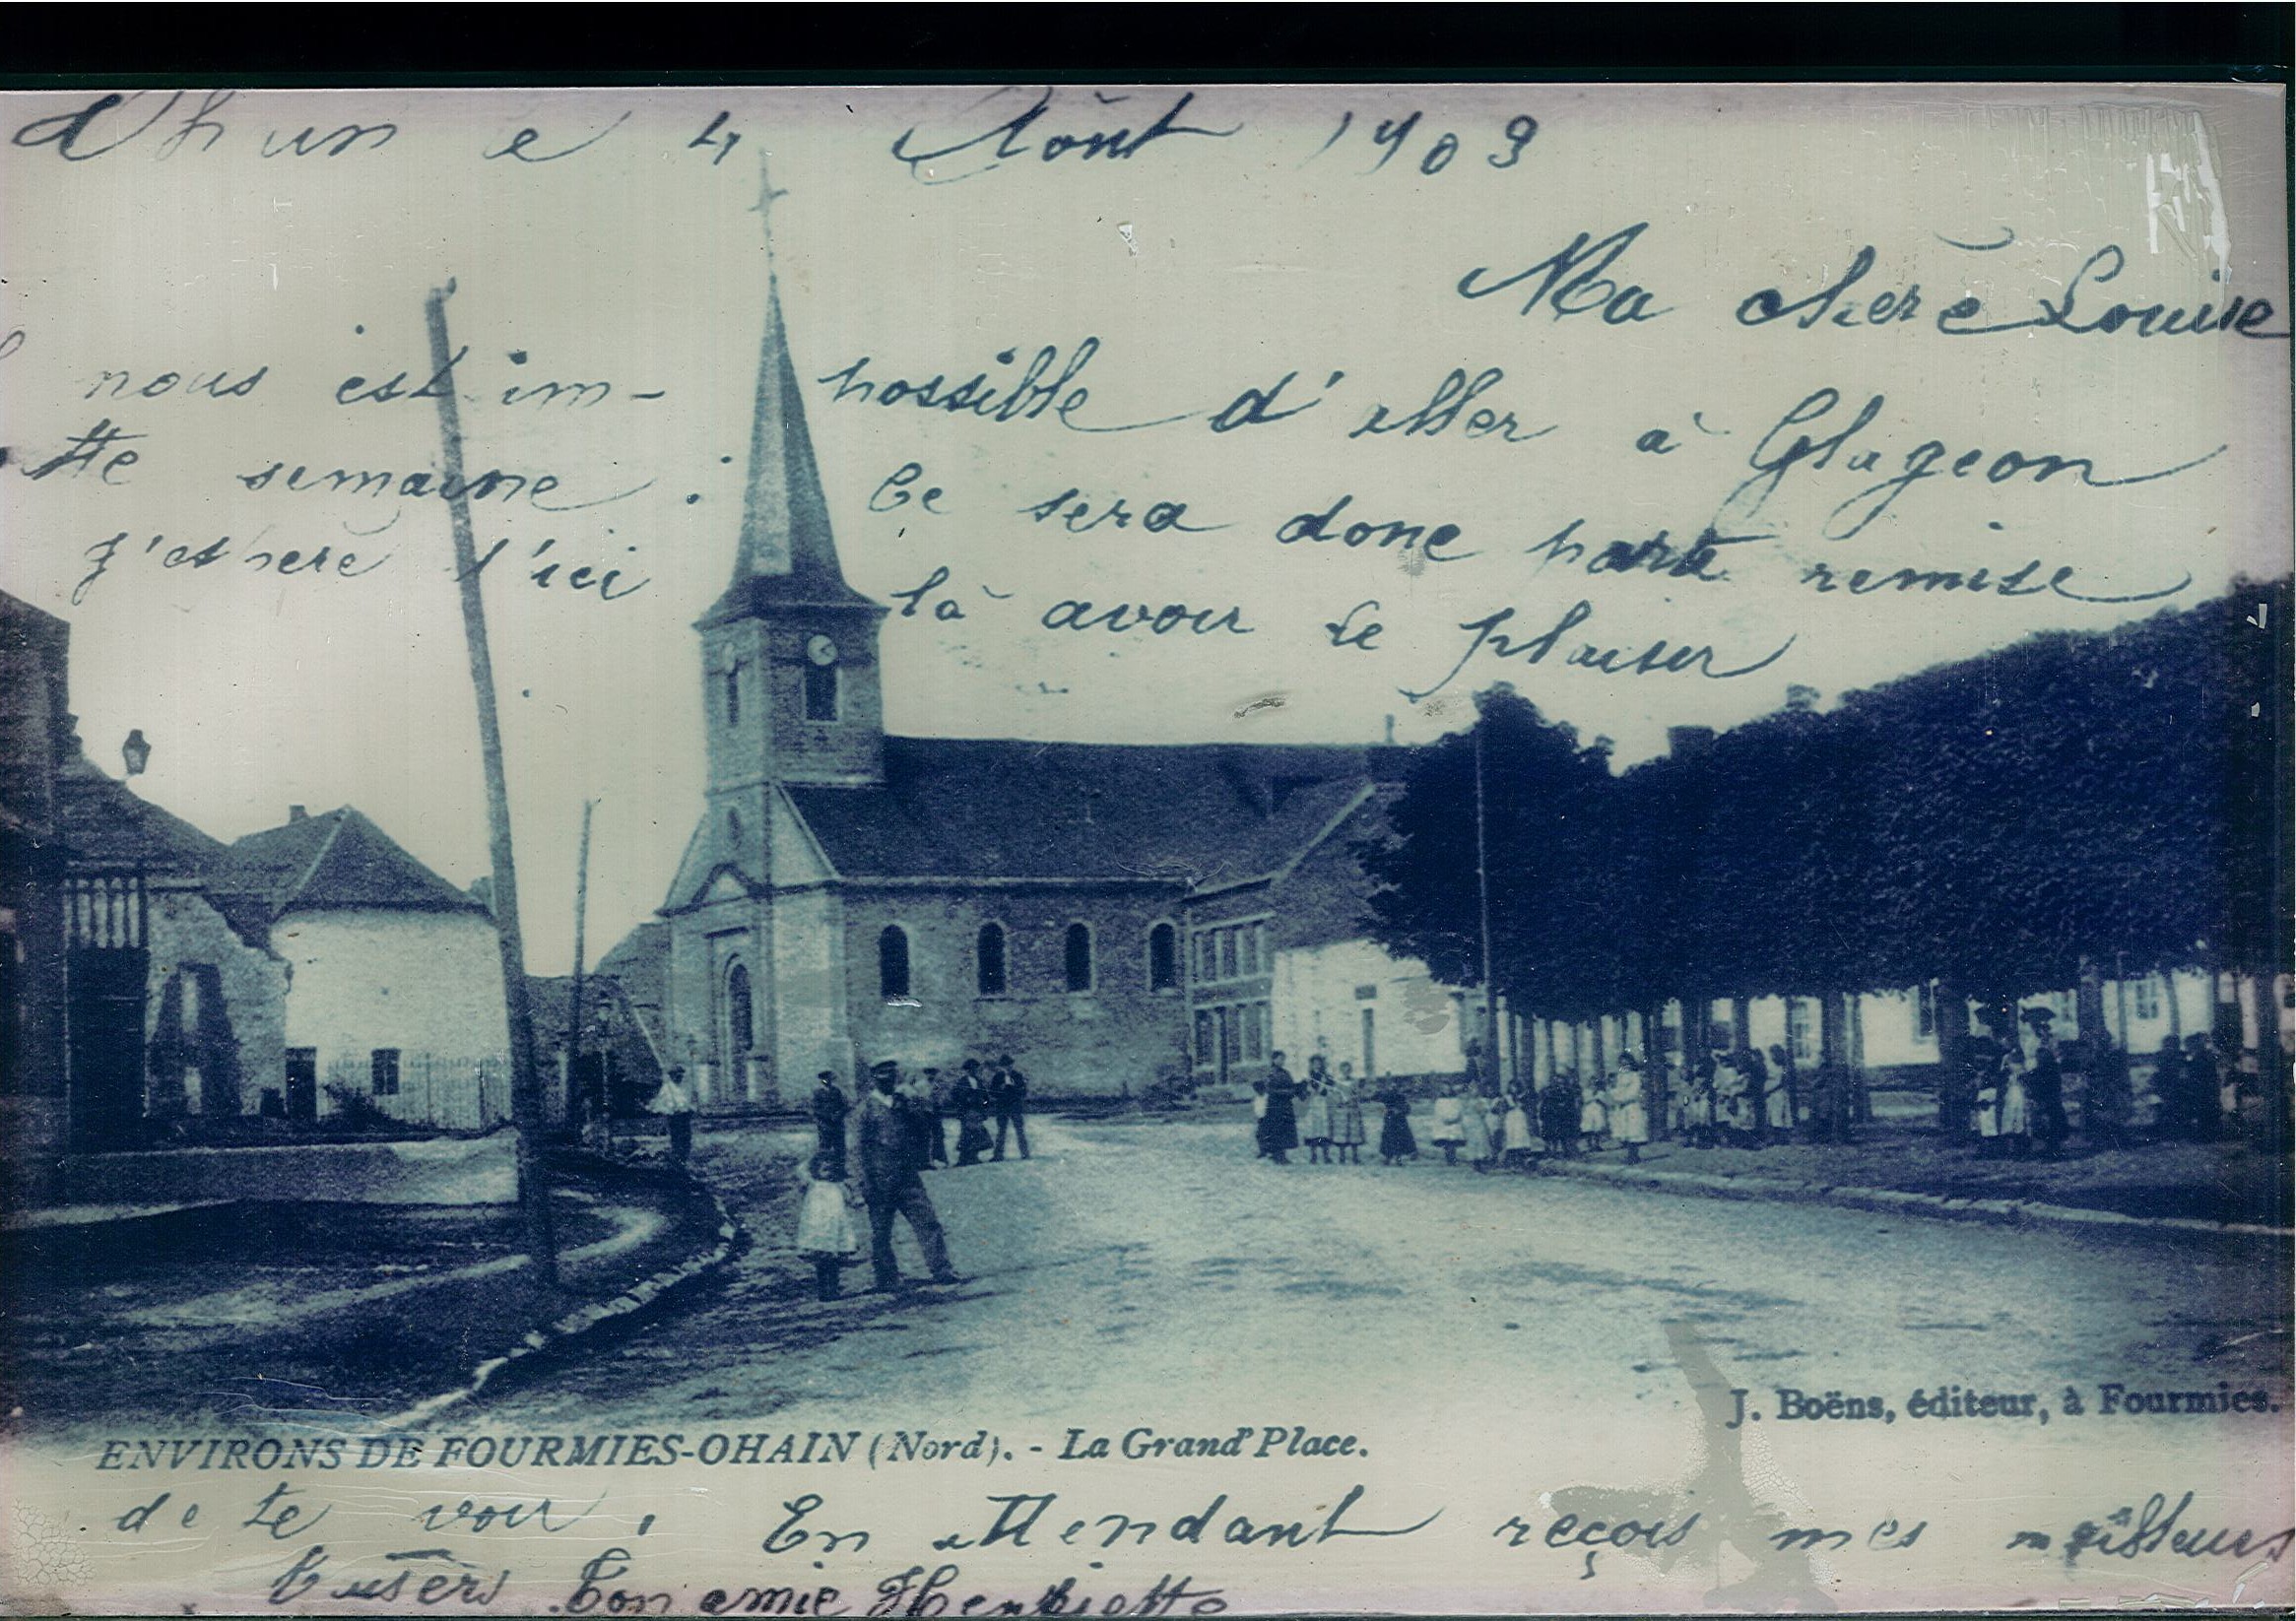 le 4 Août 1903
Ma chère Louise
nous est im- possible d'aller à Glageon
tte semaine. Ce sera donc partie remise
J'espère d'ici là avoir le plaisir
J. Boëns, éditeur, à Fourmies.
ENVIRONS DE FOURMIES-OHAIN (Nord). - La Grand'Place.
de te voir. En attendant reçois mes meilleurs
Baisers Ton amie Henriette